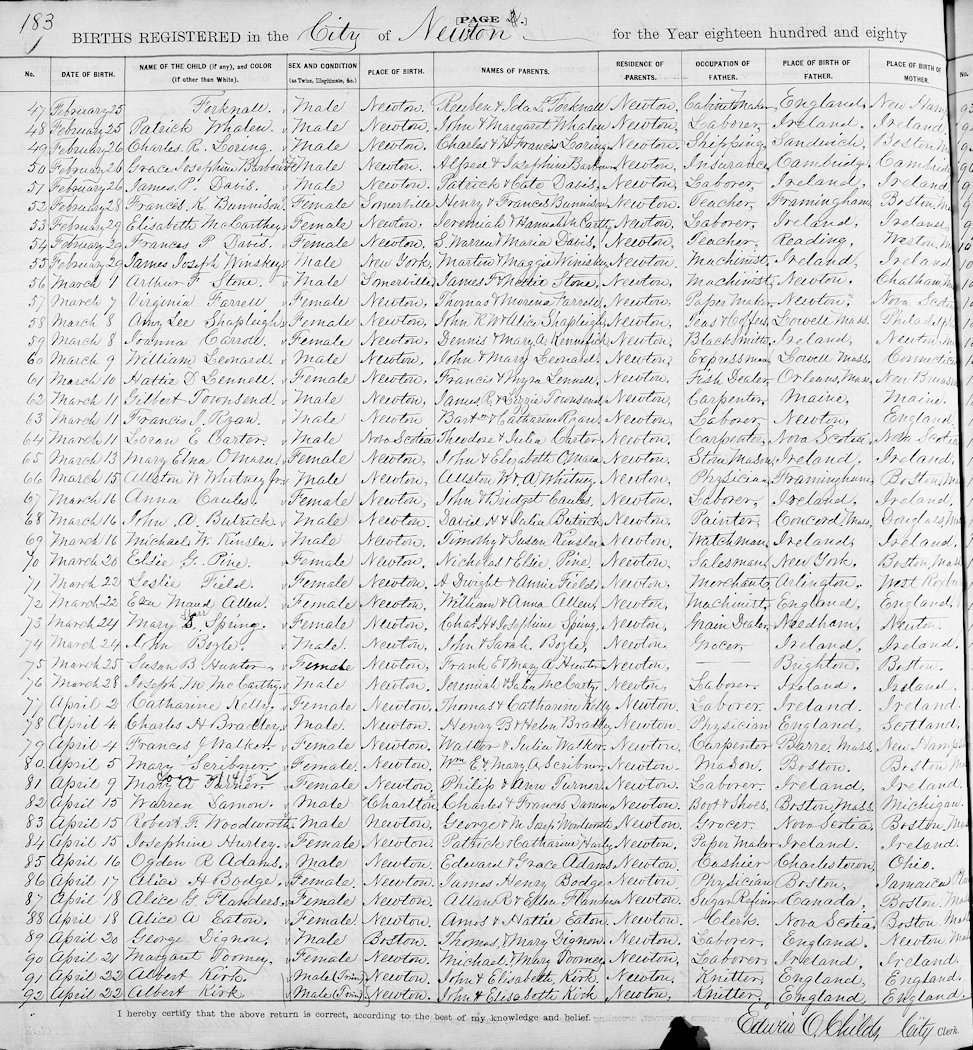 183
[PAGE 2.]
BIRTHS REGISTERED in the City of Newton for the Year eighteen hundred and eighty
No. DATE OF BIRTH. NAME OF THE CHILD (if any), and COLOR (if other than White). SEX AND CONDITION (as Twins, Illegitimate, &c.) PLACE OF BIRTH. NAMES OF PARENTS. RESIDENCE OF PARENTS. OCCUPATION OF FATHER. PLACE OF BIRTH OF FATHER. PLACE OF BIRTH OF MOTHER.
47 February 25 Forknall. Male Newton. Reuben & Ida L Forknall Newton, Cabinet Maker, England, New Ham
48 February 25 Patrick Whalen Male Newton. John & Margaret Whalen Newton, Laborer, Ireland. Ireland
49 February 26 Charles R. Loring. Male Newton. Charles & Frances Loring Newton, Shipping, Sandwich, Boston
50 February 26 Grace Josephine Barbour Male Newton. Alfred & Josephine Barbour Newton, Insurance, Cambridge, Cambrid
51 February 26 James P. Davis. Male Newton. Patrick & Cate Davis. Newton. Laborer, Ireland, Ireland
53 February 28 Frances K Bunnison. Female Somerville Henry & Frances Bunnison Newton, Teacher, Framingham, Boston,
53 February 29 Elisabeth McCarthey Female Newton, Jeremiah & Hannah McCarth Newton, Laborer, Ireland, Ireland,
54 February 29 Frances P Davis. Female Newton. S. Warren & Maria Davis, Newton, Teacher, Reading, Weston
55 February 29 James Joseph Winskey Male New York, Martin & Maggie Winskey Newton, Machinist, Ireland, Ireland
56 March 1 Arthur F Stone. Male Somerville, James F & Nettie Stone, Newton, Machinist, Newton, Chatham
57 March 7 Virginia Farrell Female Newton, Thomas & Farrell, Newton, Paper Maker, Newton, Nova Scotia
58 March 8 Amy Lee Shapleigh Female Newton, John R W & Alice Shapleigh Newton, Teas & Coffees, Lowell Mass. Philadelphi
59 March 8 Joanna Carroll Female Newton, Dennis & Mary A. Newton, Blacksmith, Ireland, Newton,
60 March 9 William Leonard. Male Newton, John & Mary Leonard. Newton, Expressman, Lowell Mass. Connectic
61 March 10 Hattie D Lennell. Female Newton, Francis & Myra Lennell, Newton. Fish Dealer, Orleans, Mass, New Bruns
62 March 11 Gilbert Townsend. Male Newton, James R & Lizzie Townsend, Newton, Carpenter, Maine, Maine.
63 March 11 Francis J. Ryan. Male Newton, Bart & Catherine Ryan, Newton. Laborer Newton, England.
64 March 11 Loran E Carter. Male Nova Scotia Theodore & Julia Carter Newton. Carpenter, Nova Scotia, Nova Scotia
65 March 13 Mary Edna O'Mara. Female Newton, John & Elizabeth O'Mara Newton. Stone Mason, Ireland. Ireland,
66 March 15 Allston W Whitney jr Male Newton, Allston W & A Whitney. Newton. Physician, Framingham, Boston,
67 March 16 Anna Caules. Female Newton, John & Bridget Caules, Newton. Laborer, Ireland, Ireland,
68 March 16 John A. Butrick. Male Newton. David H & Julia Butrick Newton. Painter, Concord Mass. Douglass
69 March 16 Michael W. Kinslea. Male Newton, Timothy & Susan Kinslea Newton. Watchman, Ireland, Ireland.
70 March 20 Elsie G. Pine. Female Newton. Nicholas & Elsie Pine Newton. Salesman, New York, Boston Mass
71 March 22 Leslie Field. Female Newton. H Dwight & Annie Field, Newton. Merchant, Arlington. West Roxbu
72 March 22 Etta Maud Allen. Female Newton. William & Anna Allen, Newton, Machinist, England, England,
73 March 24 Mary S. Spring. Female Newton. Chas. H & Josephine Spring, Newton. Grain Dealer, Needham, Newton
74 March 24 John Boyle, Male. Newton. John & Sarah Boyle, Newton, Grocer Ireland, Ireland.
75 March 25 Susan B. Hunter Female Newton. Frank E & Mary A Hunter Newton, — Brighton, Boston.
76 March 28 Joseph M McCarthy Male Newton. Jeremiah & Julia McCarty Newton. Laborer. Ireland. Ireland.
77 April 2 Catharine Kelly. Female Newton, Thomas & Catharine Kelly Newton, Laborer. Ireland. Ireland.
78 April 4 Charles H. Bradley, Male. Newton. Henry B & Helen Bradley Newton, Physician England, Scotland.
79 April 4 Frances J Walker. Female Newton, Walter & Julia Walker. Newton. Carpenter Barre Mass. New Hamps
80 April 5 Mary Scribner Female Newton. Wm E & Mary A. Scribner, Newton. Mason. Boston. Boston
81 April 9 Mary A Turner. Female Newton, Philip & Ann Turner Newton. Laborer. Ireland, Ireland.
82 April 15 Warren Damon. Male Charlton. Charles & Frances Damon Newton. Boot & Shoes, Boston Mass. Michigan.
83 April 15 Robert F. Woodworth Male Newton, George & M Joseph Woodworth Newton. Grocer. Nova Scotia, Boston
84 April 15 Josephine Hurley. Female Newton. Patrick & Catharine Hurly Newton. Paper Maker Ireland. Ireland.
85 April 16 Ogdon R Adams. Male Newton. Edward & Grace Adams Newton. Cashier Charlestown, Ohio.
86 April 17 Alice H Bodge. Female. Newton, James Henry Bodge Newton, Physician Boston, Jamaica Pla
87 April 18 Alice G Flanders. Female Newton. Allan B & Ellen Flanders Newton. Sugar Refiner Canada, Boston
88 April 18 Alice A Eaton. Female Newton. Amos & Hattie Eaton. Newton. Clerk Nova Scotia, Boston
89 April 20 George Dignon. Male Boston. Thomas & Mary Dignon Newton. Laborer, England. Newton,
90 April 21 Margaret Toomey. Female Newton. Michael & Mary Toomey Newton. Laborer Ireland, Ireland.
91 April 22 Albert Kirk. Male (Twin) Newton. John & Elisabeth Kirk. Newton. Knitter, England, England
92 April 22 Albert Kirk Male (Twin) Newton. John & Elisabeth Kirk Newton, Knitter, England, England.
I hereby certify that the above return is correct, according to the best of my knowledge and belief.
Edwin O. Childs City Clerk.